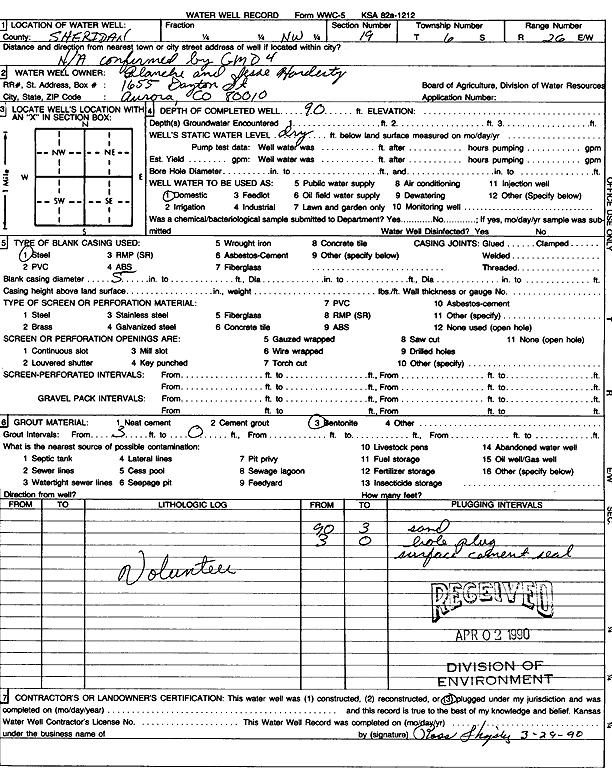 WATER WELL RECORD Form WWC-5 KSA 82a-1212
1 LOCATION OF WATER WELL: Fraction Section Number Township Number Range Number
County: SHERIDAN ¼ ¼ NW ¼ 19 T 6 S R 26 E/W
Distance and direction from nearest town or city street address of well if located within city?
N/A confirmed by GMD 4
2 WATER WELL OWNER: Blanche and Jesse Hardesty
RR#, St. Address, Box # : 1655 Dayton St Board of Agriculture, Division of Water Resources
City, State, ZIP Code : Aurora, CO 80010 Application Number:
3 LOCATE WELL'S LOCATION WITH AN "X" IN SECTION BOX:
N
NW NE
W E
SW SE
S
1 Mile
4 DEPTH OF COMPLETED WELL 90 ft. ELEVATION:
Depth(s) Groundwater Encountered 1. ft. 2. ft. 3. ft.
WELL'S STATIC WATER LEVEL dry ft. below land surface measured on mo/day/yr
Pump test data: Well water was ft. after hours pumping gpm
Est. Yield gpm: Well water was ft. after hours pumping gpm
Bore Hole Diameter in. to ft., and in. to ft.
WELL WATER TO BE USED AS: 5 Public water supply 8 Air conditioning 11 Injection well
1 Domestic 3 Feedlot 6 Oil field water supply 9 Dewatering 12 Other (Specify below)
2 Irrigation 4 Industrial 7 Lawn and garden only 10 Monitoring well
Was a chemical/bacteriological sample submitted to Department? Yes No ; If yes, mo/day/yr sample was submitted
Water Well Disinfected? Yes No
5 TYPE OF BLANK CASING USED: 5 Wrought iron 8 Concrete tile CASING JOINTS: Glued Clamped
1 Steel 3 RMP (SR) 6 Asbestos-Cement 9 Other (specify below) Welded
2 PVC 4 ABS 7 Fiberglass Threaded
Blank casing diameter 5 in. to ft., Dia in. to ft., Dia in. to ft.
Casing height above land surface in., weight lbs./ft. Wall thickness or gauge No.
TYPE OF SCREEN OR PERFORATION MATERIAL: 7 PVC 10 Asbestos-cement
1 Steel 3 Stainless steel 5 Fiberglass 8 RMP (SR) 11 Other (specify)
2 Brass 4 Galvanized steel 6 Concrete tile 9 ABS 12 None used (open hole)
SCREEN OR PERFORATION OPENINGS ARE: 5 Gauzed wrapped 8 Saw cut 11 None (open hole)
1 Continuous slot 3 Mill slot 6 Wire wrapped 9 Drilled holes
2 Louvered shutter 4 Key punched 7 Torch cut 10 Other (specify)
SCREEN-PERFORATED INTERVALS: From ft. to ft., From ft. to ft.
From ft. to ft., From ft. to ft.
GRAVEL PACK INTERVALS: From ft. to ft., From ft. to ft.
From ft. to ft., From ft. to ft.
6 GROUT MATERIAL: 1 Neat cement 2 Cement grout 3 Bentonite 4 Other
Grout Intervals: From 3 ft. to 0 ft., From ft. to ft., From ft. to ft.
What is the nearest source of possible contamination: 10 Livestock pens 14 Abandoned water well
1 Septic tank 4 Lateral lines 7 Pit privy 11 Fuel storage 15 Oil well/Gas well
2 Sewer lines 5 Cess pool 8 Sewage lagoon 12 Fertilizer storage 16 Other (specify below)
3 Watertight sewer lines 6 Seepage pit 9 Feedyard 13 Insecticide storage
Direction from well? How many feet?
FROM TO LITHOLOGIC LOG FROM TO PLUGGING INTERVALS
90 3 sand
3 0 hole plug
surface cement seal
Volunteer
RECEIVED
APR 02 1990
DIVISION OF
ENVIRONMENT
7 CONTRACTOR'S OR LANDOWNER'S CERTIFICATION: This water well was (1) constructed, (2) reconstructed, or (3) plugged under my jurisdiction and was
completed on (mo/day/year) and this record is true to the best of my knowledge and belief. Kansas
Water Well Contractor's License No. This Water Well Record was completed on (mo/day/yr)
under the business name of by (signature) 3-29-90
OFFICE USE ONLY
T
R
E/W
SEC.
¼
¼
¼